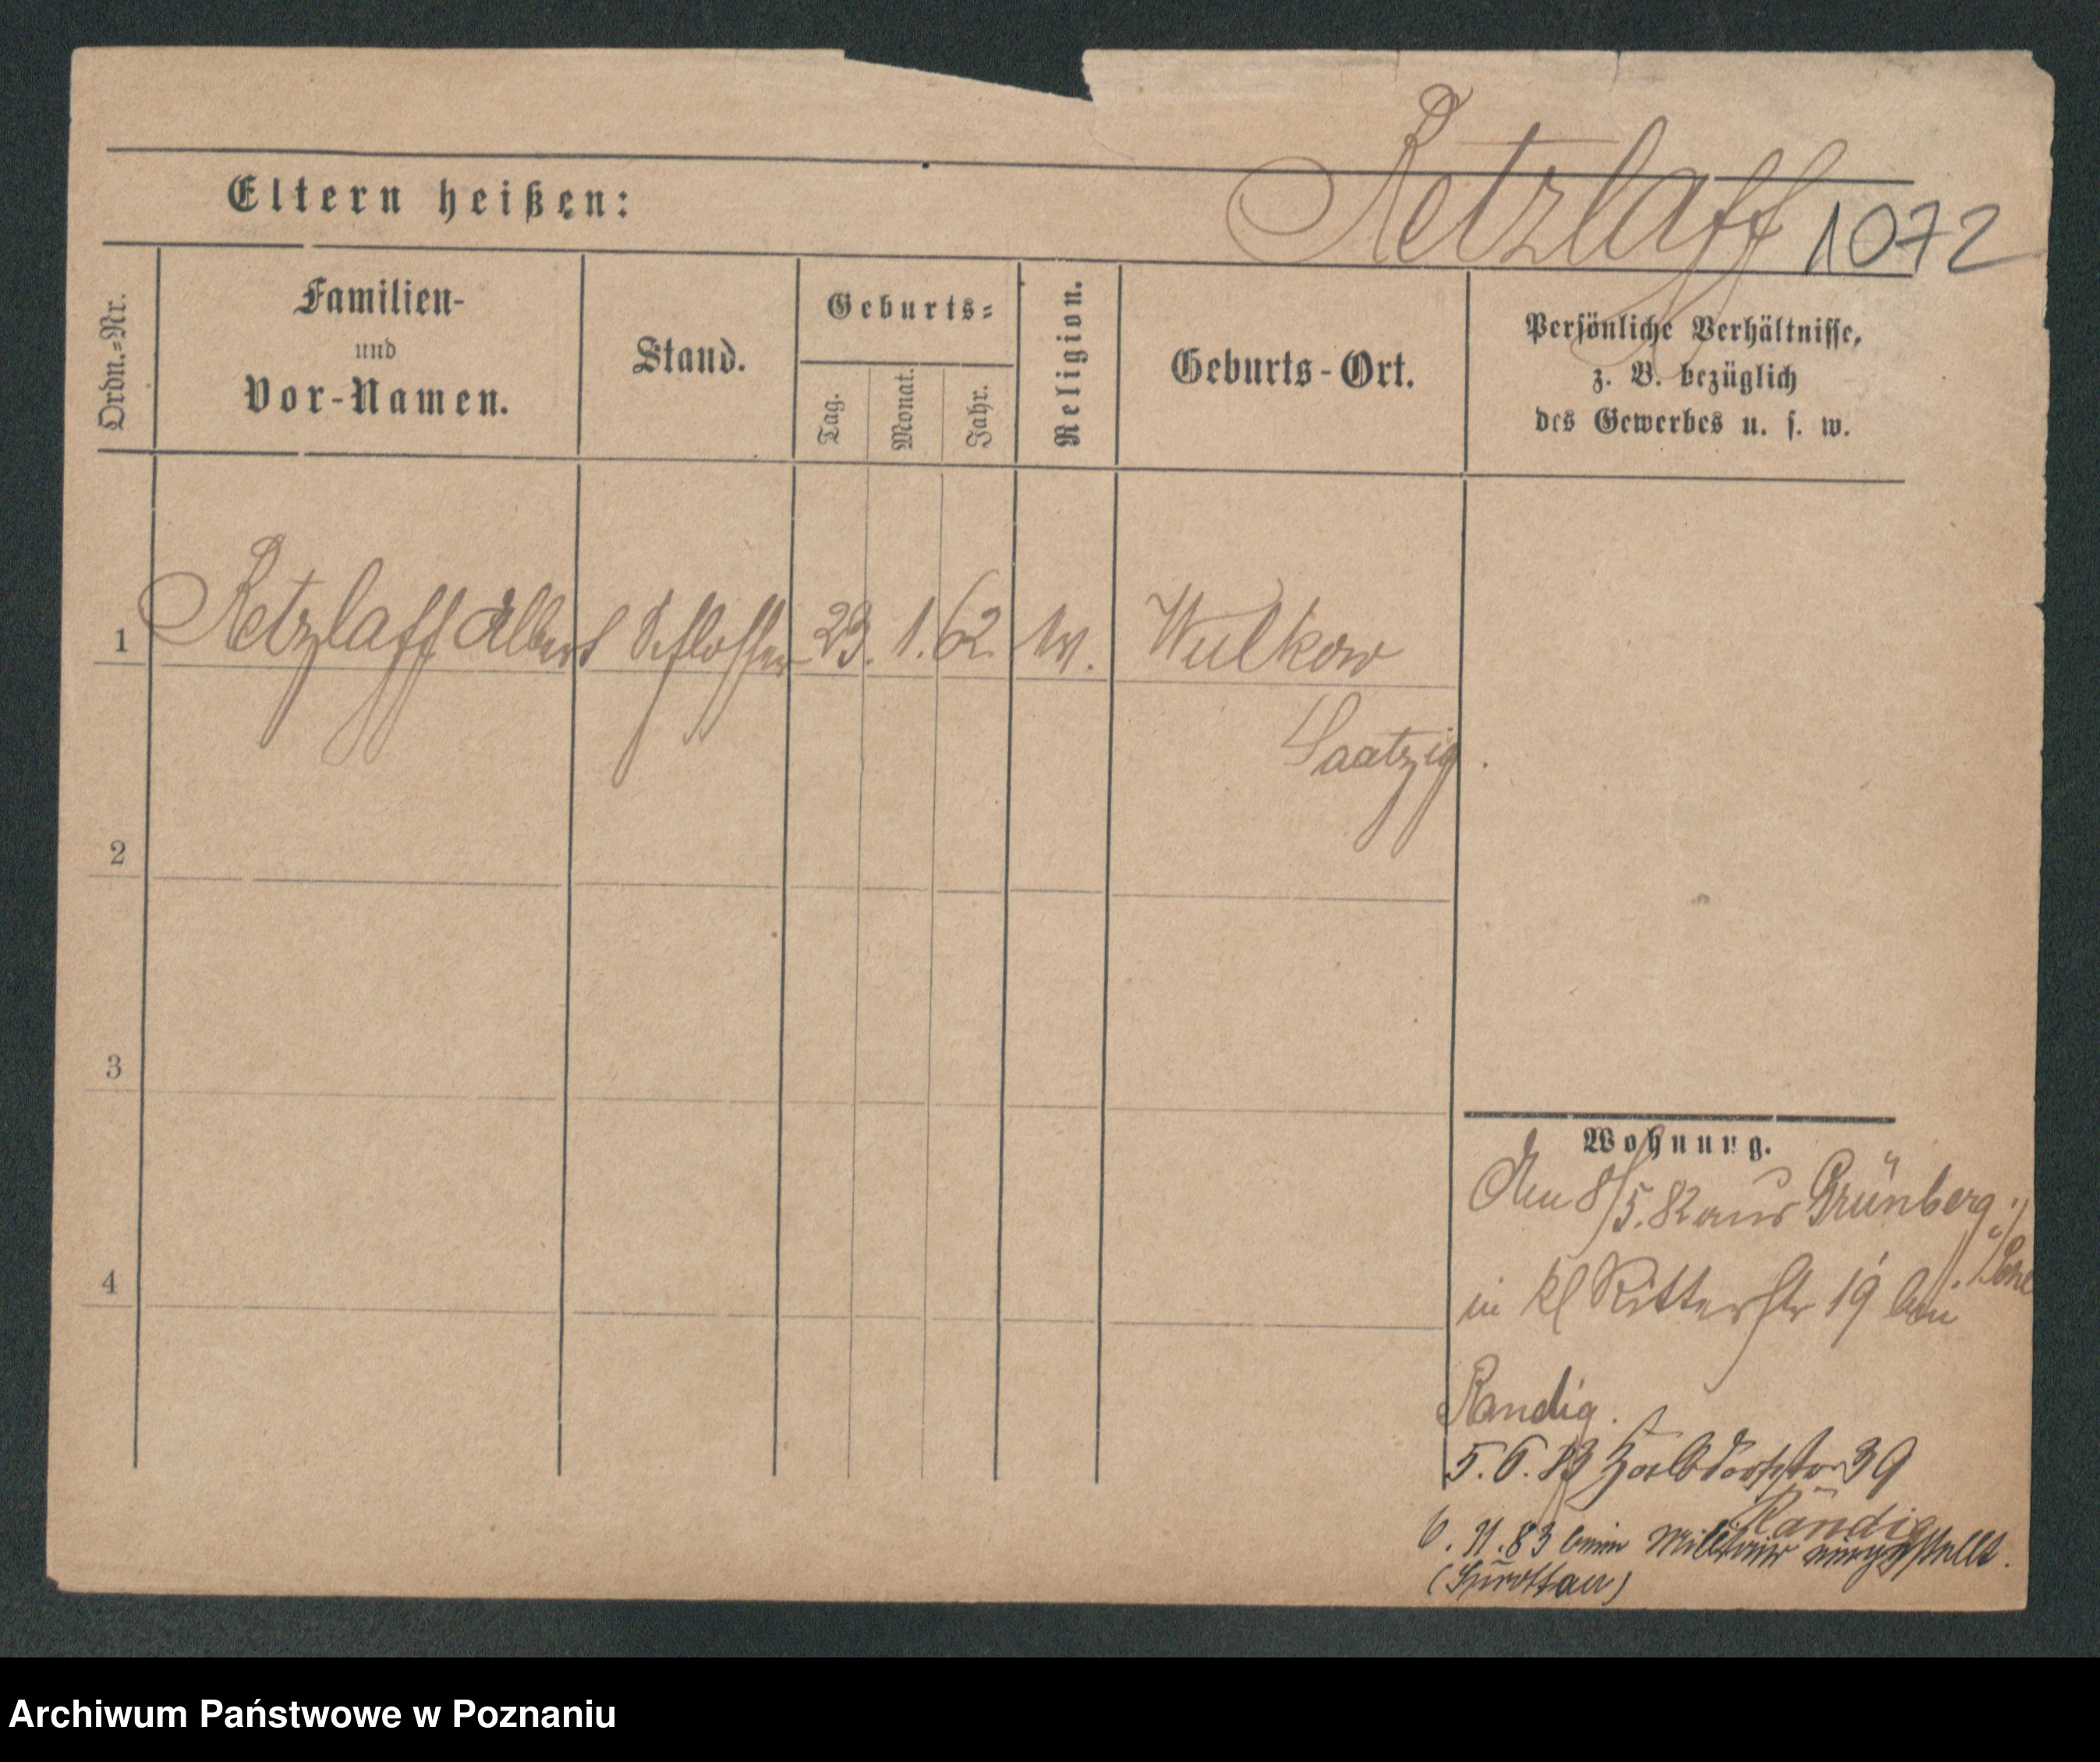 Retzlaff 1072
Eltern heißen:
Ordn.=Nr.
Familien-
und
Vor-Namen.
Stand.
Geburts=
Tag.
Monat.
Jahr.
Religion.
Geburts-Ort.
Persönliche Verhältnisse,
z. B. bezüglich
des Gewerbes u. s. w.
1 Retzlaff Albert Schlosser 23. 1. 62. Wulkow
Saatzig.
2
3
4
Wohnung.
8/5. 82 aus Grünberg
in kl Ritterstr 19 bei
Randig.
5. 6. 83 Halbdorfstr 39
Randig
6. 11. 83 beim Militair eingestellt.
(Sprottau)
Archiwum Państwowe w Poznaniu